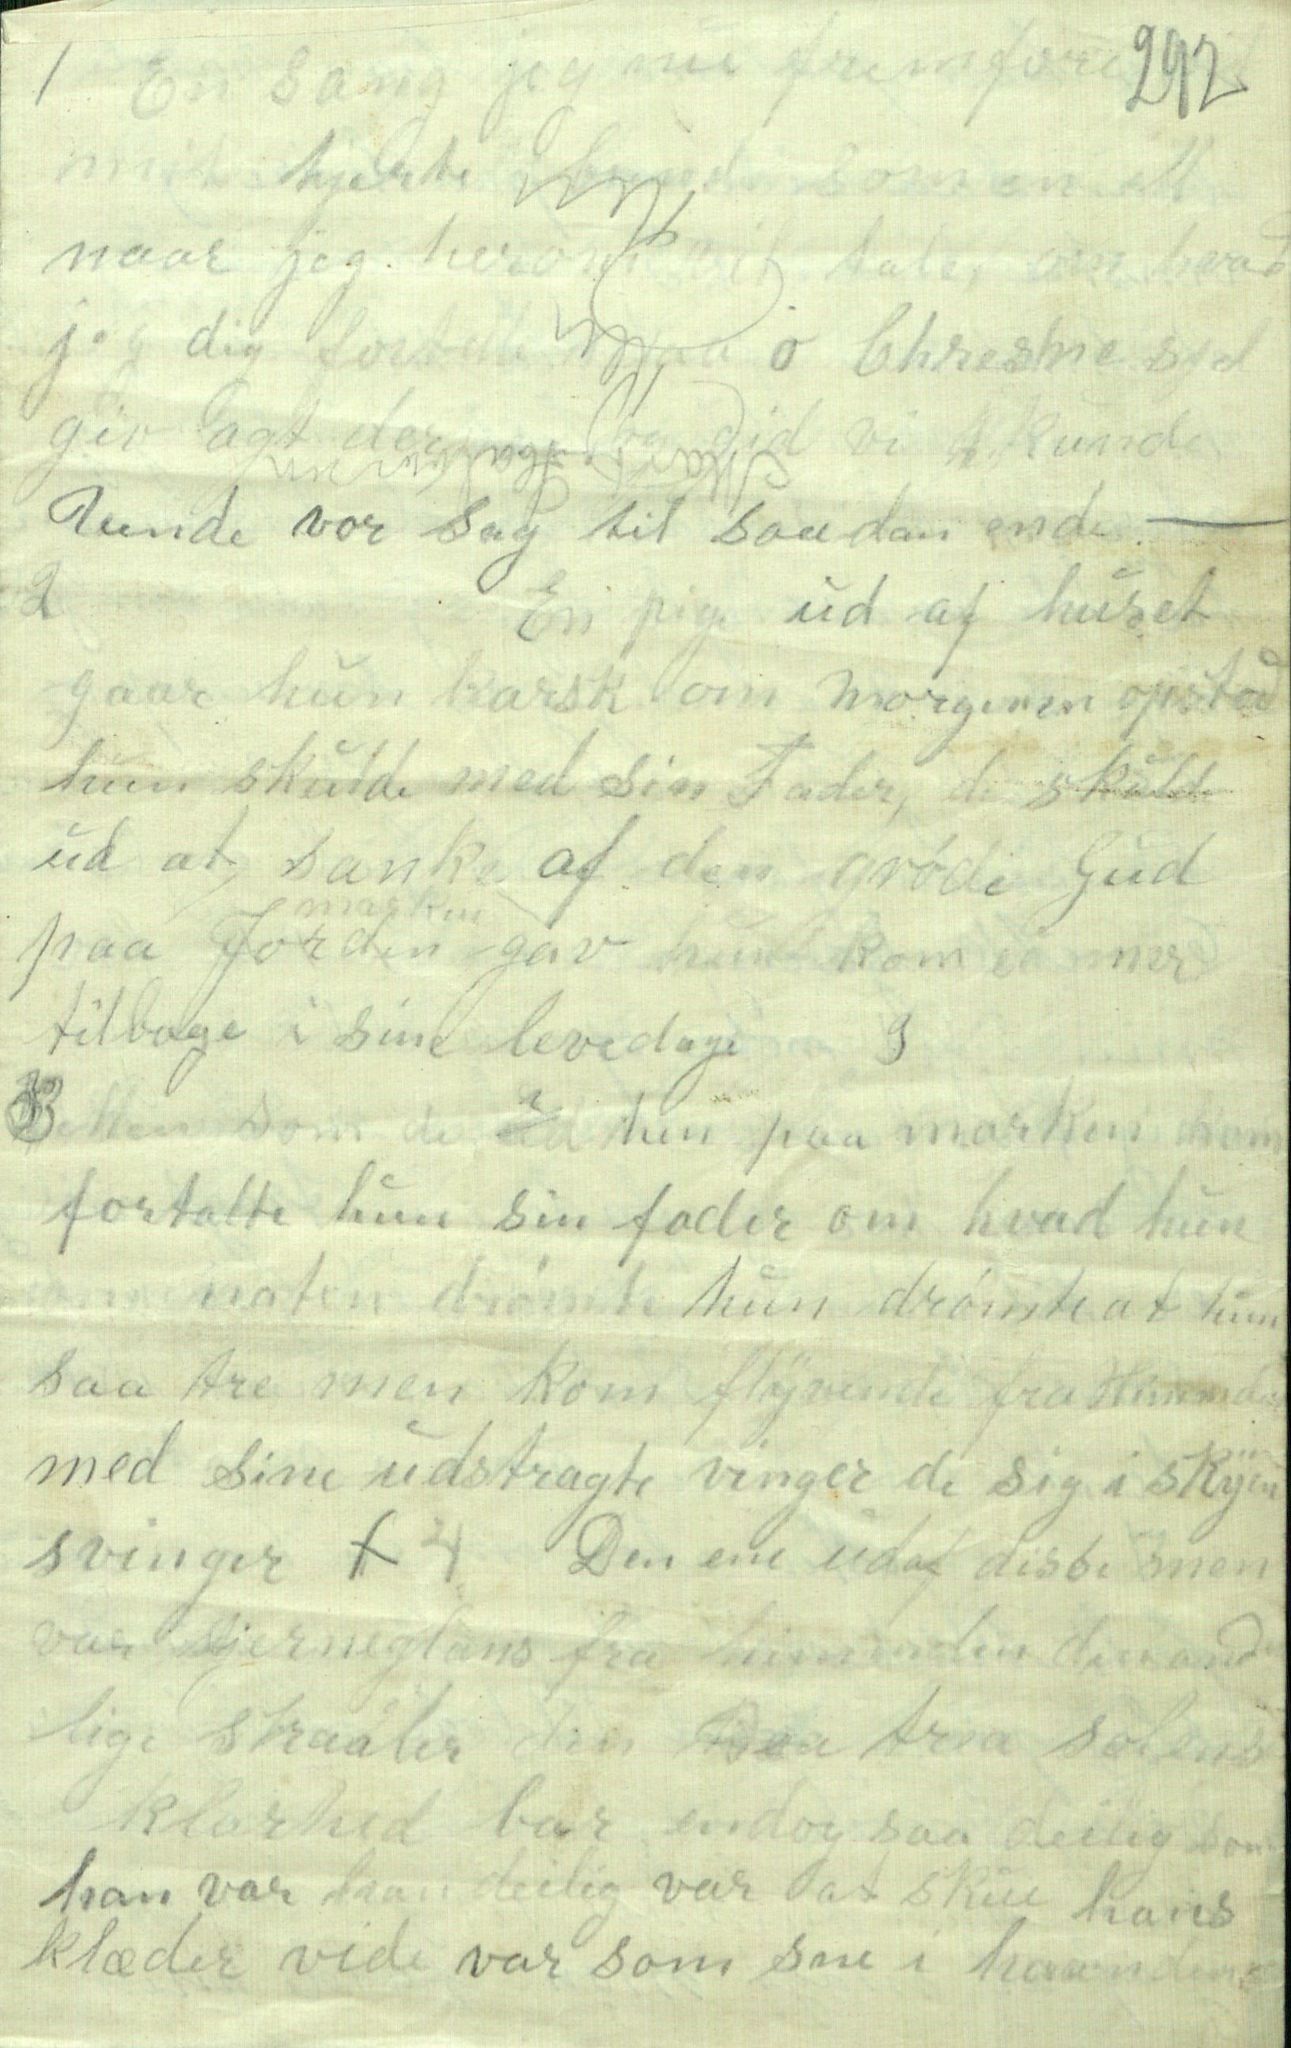 292
1 En Sang jeg nu fremføre vil
mit hjerte brend som en ill
naar jeg herom vil tale, om hvad
jeg dig fortelle maa o Chrestne sjel
giv agt derpaa og gid vi kunde
vende vor sag til saadan ende —
2 En pige ud af huset
gaar hun karsk om morgenen opstod
hun skulde med sin Fader, de skulde
ud at sanke af den grøde Gud
marken
paa Jorden gav hun kom ei mer
tilbage i sine levedage 3
3 Men som de ud hen paa marken kom
fortalte hun sin fader om hvad hun
om naten drømte hun drømte at hun
saa tre men kom flÿvende fra Himmelen
med sine udstragte vinger de sig i skÿen
svinger 4 Den ene udaf disse men
var stjerneglans fra himmelen den anden
lige straaler den tria solens
klarhed bar endog saa deilig som
han var han deilig var at skue hans
klæder vide var som sne i haandene